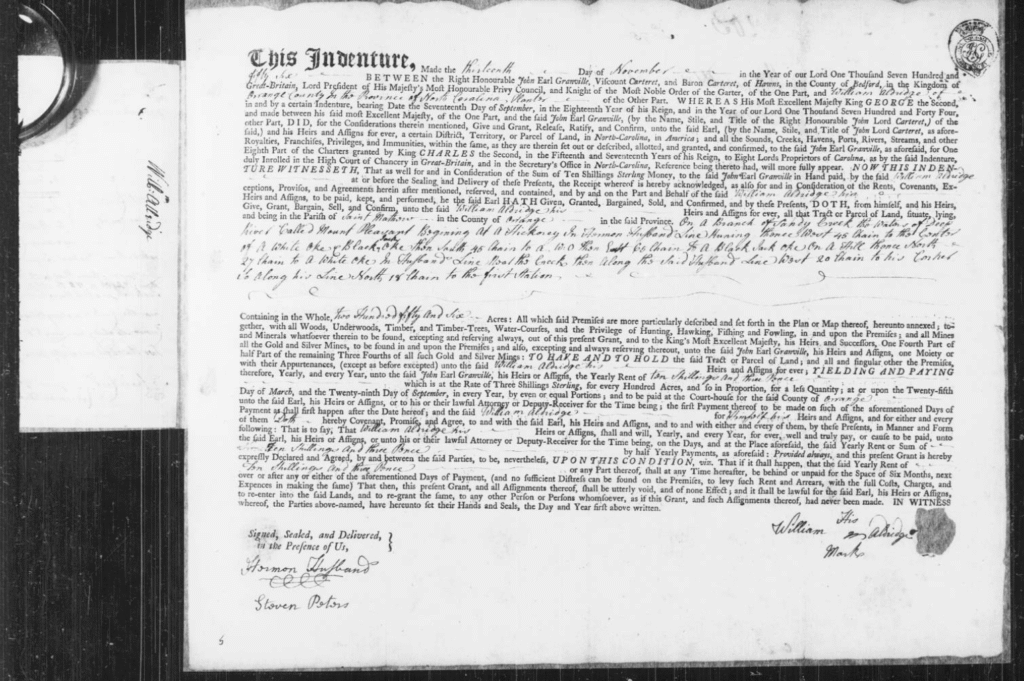 This Indenture, Made the thirteenth Day of November in the Year of our Lord One Thousand Seven Hundred and
fifty Six BETWEEN the Right Honourable John Earl Granville, Viscount Carteret, and Baron Carteret, of Hawnes, in the County of Bedford, in the Kingdom of
Great-Britain, Lord President of His Majesty's Most Honourable Privy Council, and Knight of the Most Noble Order of the Garter, of the One Part, and William Aldridge of
Orrange County in the Province of North Carolina Planter of the Other Part. WHEREAS His Most Excellent Majesty King GEORGE the Second,
in and by a certain Indenture, bearing Date the Seventeenth Day of September, in the Eighteenth Year of his Reign, and in the Year of our Lord One Thousand Seven Hundred and Forty Four,
and made between his said most Excellent Majesty, of the One Part, and the said John Earl Granville, (by the Name, Stile, and Title of the Right Honourable John Lord Carteret,) of the
other Part, DID, for the Considerations therein mentioned, Give and Grant, Release, Ratify, and Confirm, unto the said Earl, (by the Name, Stile, and Title of John Lord Carteret, as afore-
said,) and his Heirs and Assigns for ever, a certain District, Territory, or Parcel of Land, in North-Carolina, in America; and all the Sounds, Creeks, Havens, Ports, Rivers, Streams, and other
Royalties, Franchises, Privileges, and Immunities, within the same, as they are therein set out or described, allotted, and granted, and confirmed, to the said John Earl Granville, as aforesaid, for One
Eighth Part of the Charters granted by King CHARLES the Second, in the Fifteenth and Seventeenth Years of his Reign, to Eight Lords Proprietors of Carolina, as by the said Indenture,
duly Inrolled in the High Court of Chancery in Great-Britain, and in the Secretary's Office in North-Carolina, Reference being thereto had, will more fully appear. NOW THIS INDEN-
TURE WITNESSETH, That as well for and in Consideration of the Sum of Ten Shillings Sterling Money, to the said John Earl Granville in Hand paid, by the said William Aldridge
at or before the Sealing and Delivery of these Presents, the Receipt whereof is hereby acknowledged, as also for and in Consideration of the Rents, Covenants, Ex-
ceptions, Provisos, and Agreements herein after mentioned, reserved, and contained, and by and on the Part and Behalf of the said William Aldridge his
Heirs and Assigns, to be paid, kept, and performed, he the said Earl HATH Given, Granted, Bargained, Sold, and Confirmed, and by these Presents, DOTH, from himself, and his Heirs,
Give, Grant, Bargain, Sell, and Confirm, unto the said William Aldridge his Heirs and Assigns for ever, all that Tract or Parcel of Land, situate, lying,
and being in the Parish of Saint Mathew in the County of Orrange in the said Province. On a Branch of Sandy Creek the waters of Deep
River Calld Mount Pleasant Begining at a Hickrey in Hermon Husband Line Runing thence West 45 Chain to the Center
of A White Oke & Black Oke then South 45 Chain to a W O then East 65 Chain to A Black Jack Oke On a Hill thence North
27 Chain to A White Oke in Husband Line Near the Creek then along the Said Husband Line West 20 Chain to his Corner
So Along his Line North 18 Chain to the first Station
Containing in the Whole, Two Hundred fifty And Six Acres: All which said Premises are more particularly described and set forth in the Plan or Map thereof, hereunto annexed; to-
gether, with all Woods, Underwoods, Timber, and Timber-Trees, Water-Courses, and the Privilege of Hunting, Hawking, Fishing and Fowling, in and upon the Premises; and all Mines
and Minerals whatsoever therein to be found, excepting and reserving always, out of this present Grant, and to the King's Most Excellent Majesty, his Heirs and Successors, One Fourth Part of
all the Gold and Silver Mines, to be found in and upon the Premises; and also, excepting and always reserving thereout, unto the said John Earl Granville, his Heirs and Assigns, one Moiety or
half Part of the remaining Three Fourths of all such Gold and Silver Mines: TO HAVE AND TO HOLD the said Tract or Parcel of Land; and all and singular other the Premises,
with their Appurtenances, (except as before excepted) unto the said William Aldridge his Heirs and Assigns for ever; YIELDING AND PAYING
therefore, Yearly, and every Year, unto the said John Earl Granville, his Heirs or Assigns, the Yearly Rent of ten Shillings And three Pence
which is at the Rate of Three Shillings Sterling, for every Hundred Acres, and so in Proportion, for a less Quantity; at or upon the Twenty-fifth
Day of March, and the Twenty-ninth Day of September, in every Year, by even or equal Portions; and to be paid at the Court-house for the said County of Orrange
unto the said Earl, his Heirs or Assigns, or to his or their lawful Attorney or Deputy-Receiver for the Time being; the first Payment thereof to be made on such of the aforementioned Days of
Payment as shall first happen after the Date hereof; and the said William Aldridge for himself his Heirs and Assigns, and for either and every
of them Doth hereby Covenant, Promise, and Agree, to and with the said Earl, his Heirs and Assigns, and to and with either and every of them, by these Presents, in Manner and Form
following: That is to say, That William Aldridge his Heirs or Assigns, shall and will, Yearly, and every Year, for ever, well and truly pay, or cause to be paid, unto
the said Earl, his Heirs or Assigns, or unto his or their lawful Attorney or Deputy-Receiver for the Time being, on the Days, and at the Place aforesaid, the said Yearly Rent or Sum of
Ten Shillings And three Pence by half Yearly Payments, as aforesaid: Provided always, and this present Grant is hereby
expressly Declared and Agreed, by and between the said Parties, to be, nevertheless, UPON THIS CONDITION, viz. That if it shall happen, that the said Yearly Rent of
Ten Shillings And three Pence or any Part thereof, shall at any Time hereafter, be behind or unpaid for the Space of Six Months, next
over or after any or either of the aforementioned Days of Payment, (and no sufficient Distress can be found on the Premises, to levy such Rent and Arrears, with the full Costs, Charges, and
Expences in making the same) That then, this present Grant, and all Assignments thereof, shall be utterly void, and of none Effect; and it shall be lawful for the said Earl, his Heirs or Assigns,
to re-enter into the said Lands, and to re-grant the same, to any other Person or Persons whomsoever, as if this Grant, and such Assignments thereof, had never been made. IN WITNESS
whereof, the Parties above-named, have hereunto set their Hands and Seals, the Day and Year first above written.
Signed, Sealed, and Delivered,
in the Presence of Us,
Hermon Husband
Steven Peters
William His Aldridge
Mark
Will: Aldridge
5